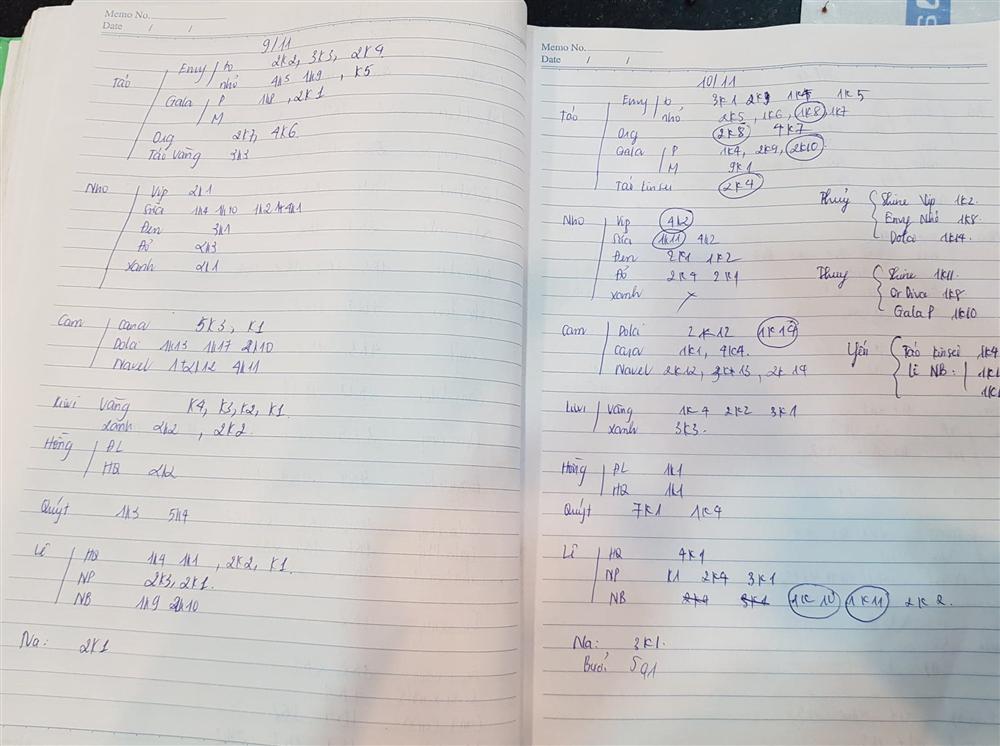 Memo No.
Date / /
9/11
Táo Envy to 2K2, 3K3, 2K4
nhỏ 4K5 1K9, K5
Gala P 1K8, 2K1
M
Org 2K7, 4K6
Táo vàng 3K3
Nho Vip 2K1
Sữa 1K4 1K10 1K2
Đen 3K1
Đỏ 2K3
Xanh 2K1
Cam Cara 5K3, K1
Dola 1K13 1K17 2K10
Navel 4K11
Kiwi Vàng K4, K3, K2, K1
Xanh 2K2, 2K2
Hồng ĐL
HQ 2K2
Quýt 1K3 5K4
Lê HQ 1K4 1K1, 2K2, K1.
NP 2K3, 2K1.
NB 1K9 2K10
Na: 2K1
Memo No.
Date / /
10/11
Táo Envy to 3K1 1K5
nhỏ 2K5, 1K6, 1K8, 1K7
Org 2K8 4K7
Gala P 1K4, 2K9, 2K10
M 9K1
Táo kinsei 2K4
Thuý Shine Vip 1K2.
Envy Nhỏ 1K8.
Dolci 1K14.
Nho Vip 4K2
Sữa 1K11 4K2
Đen 2K1 1K2
Đỏ 2K4 2K1
Xanh x
Thuý Shine 1K11.
Or Diva 1K8.
Gala P 1K10
Cam Dola 2K12 1K14
Cara 1K1, 4K4.
Navel 2K12, 3K13, 2K14
Yến Táo kinsei 1K4
Lê NB: 1K1
1K1
Kiwi Vàng 1K4 2K2 3K1
Xanh 3K3.
Hồng ĐL 1K1
HQ 1K1
Quýt 7K1 1K4
Lê HQ 4K1
NP K1 2K4 3K1
NB 1K10 1K11 2K2
Na: 3K1.
Bưởi 5q1